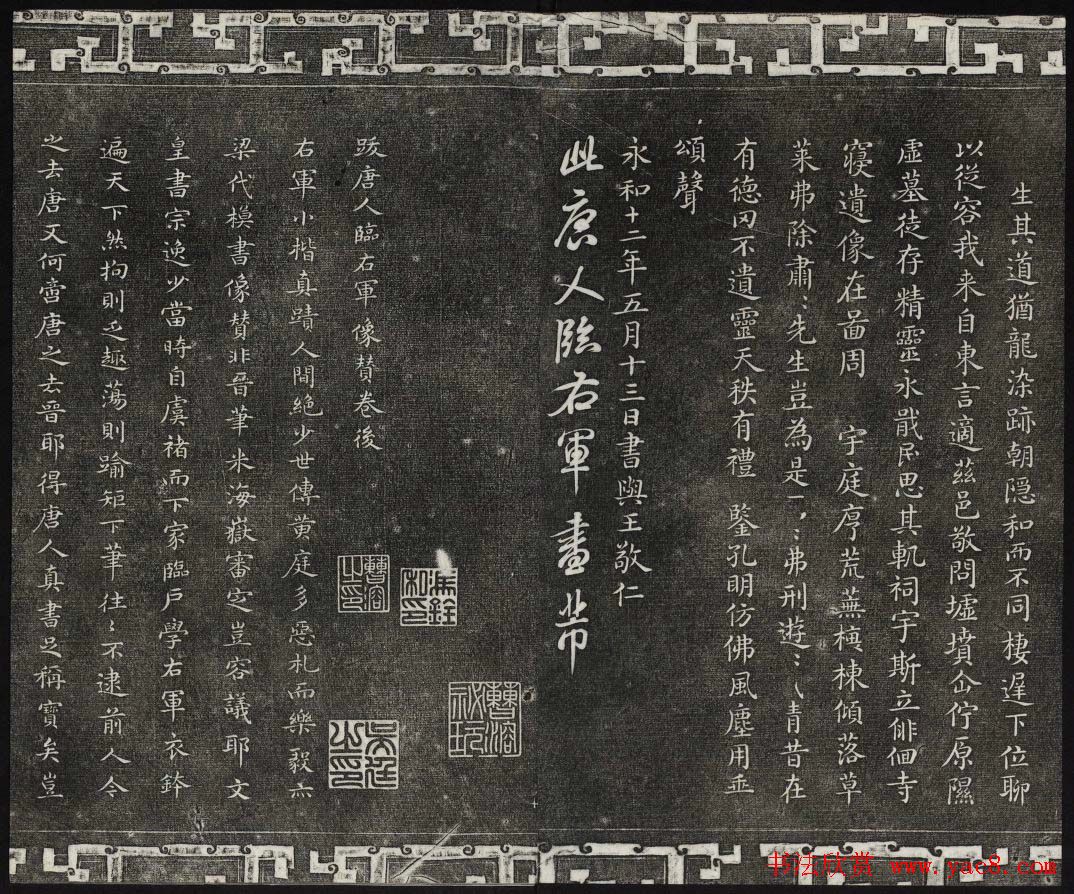 生其道猶龍染跡朝隱和而不同棲遲下位聊
以從容我来自東言適茲邑敬問墟墳企佇原隰
虛墓徒存精靈永戢民思其軌祠宇斯立俳佪寺
寢遺像在啚周 宇庭序荒蕪榱棟傾落草
莱弗除肅:先生豈為是:弗刑遊::青昔在
有德罔不遺靈天秩有禮 鑒孔明仿佛風塵用垂
頌聲
永和十二年五月十三日書與王敬仁
此唐人臨右軍畫贊
跋唐人臨右軍像贊卷後
右軍小楷真蹟人間絶少世傳黄庭多惡札而樂毅亦
梁代模書像贊非晉筆米海嶽審定豈容議耶文
皇書宗逸少當時自虞褚而下家臨戶學右軍衣鉢
遍天下然拘則乏趣蕩則踰矩下筆往:不逮前人今
之去唐又何啻唐之去晉耶得唐人真書足稱寶矣豈
曹溶之印
馮銓私印
曹溶秘玩
吳廷之印
书法欣赏 www.yac8.com